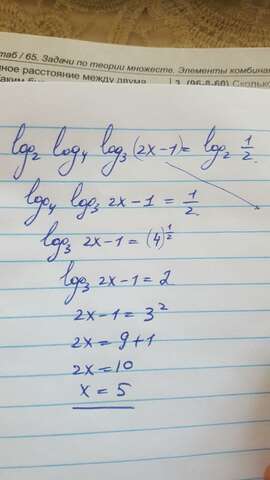 таб / 65. Задачи по теории множеств. Элементы комбина
ное расстояние между двумя
3. (96-8-60) Сколько
log₂ log₄ log₃ (2x-1) = log₂ 1/2
log₄ log₃ 2x-1 = 1/2
log₃ 2x-1 = (4)^1/2
log₃ 2x-1 = 2
2x-1 = 3²
2x = 9+1
2x = 10
x = 5